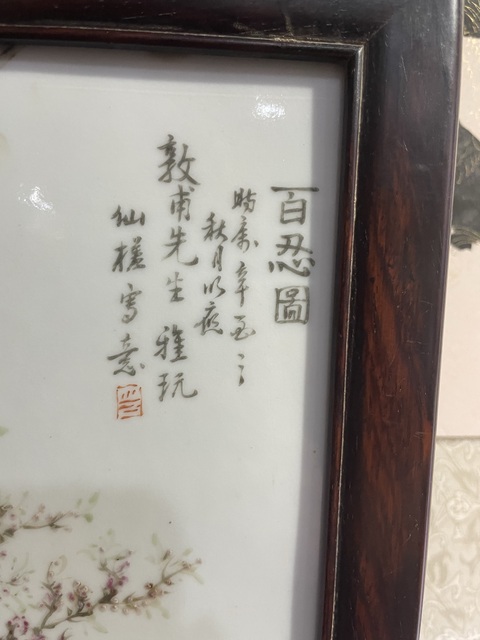 百忍圖
時屬辛酉之
秋月以應
敦甫先生雅玩
仙槎寫意